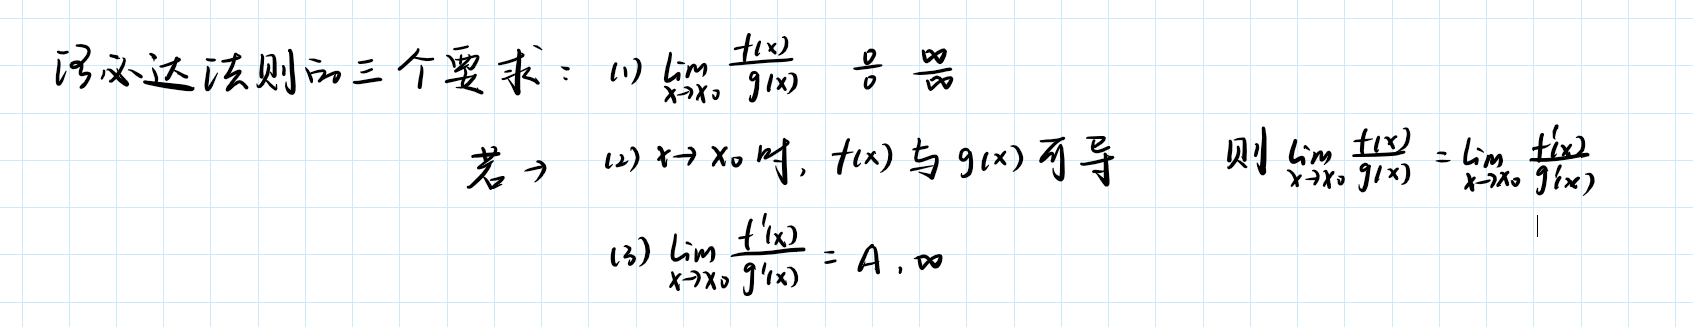 洛必达法则的三个要求：(1) lim x→x₀ f(x)/g(x) 0/0 ∞/∞
若→ (2) x→x₀时, f(x)与g(x)可导 则 lim x→x₀ f(x)/g(x) = lim x→x₀ f'(x)/g'(x)
(3) lim x→x₀ f'(x)/g'(x) = A, ∞